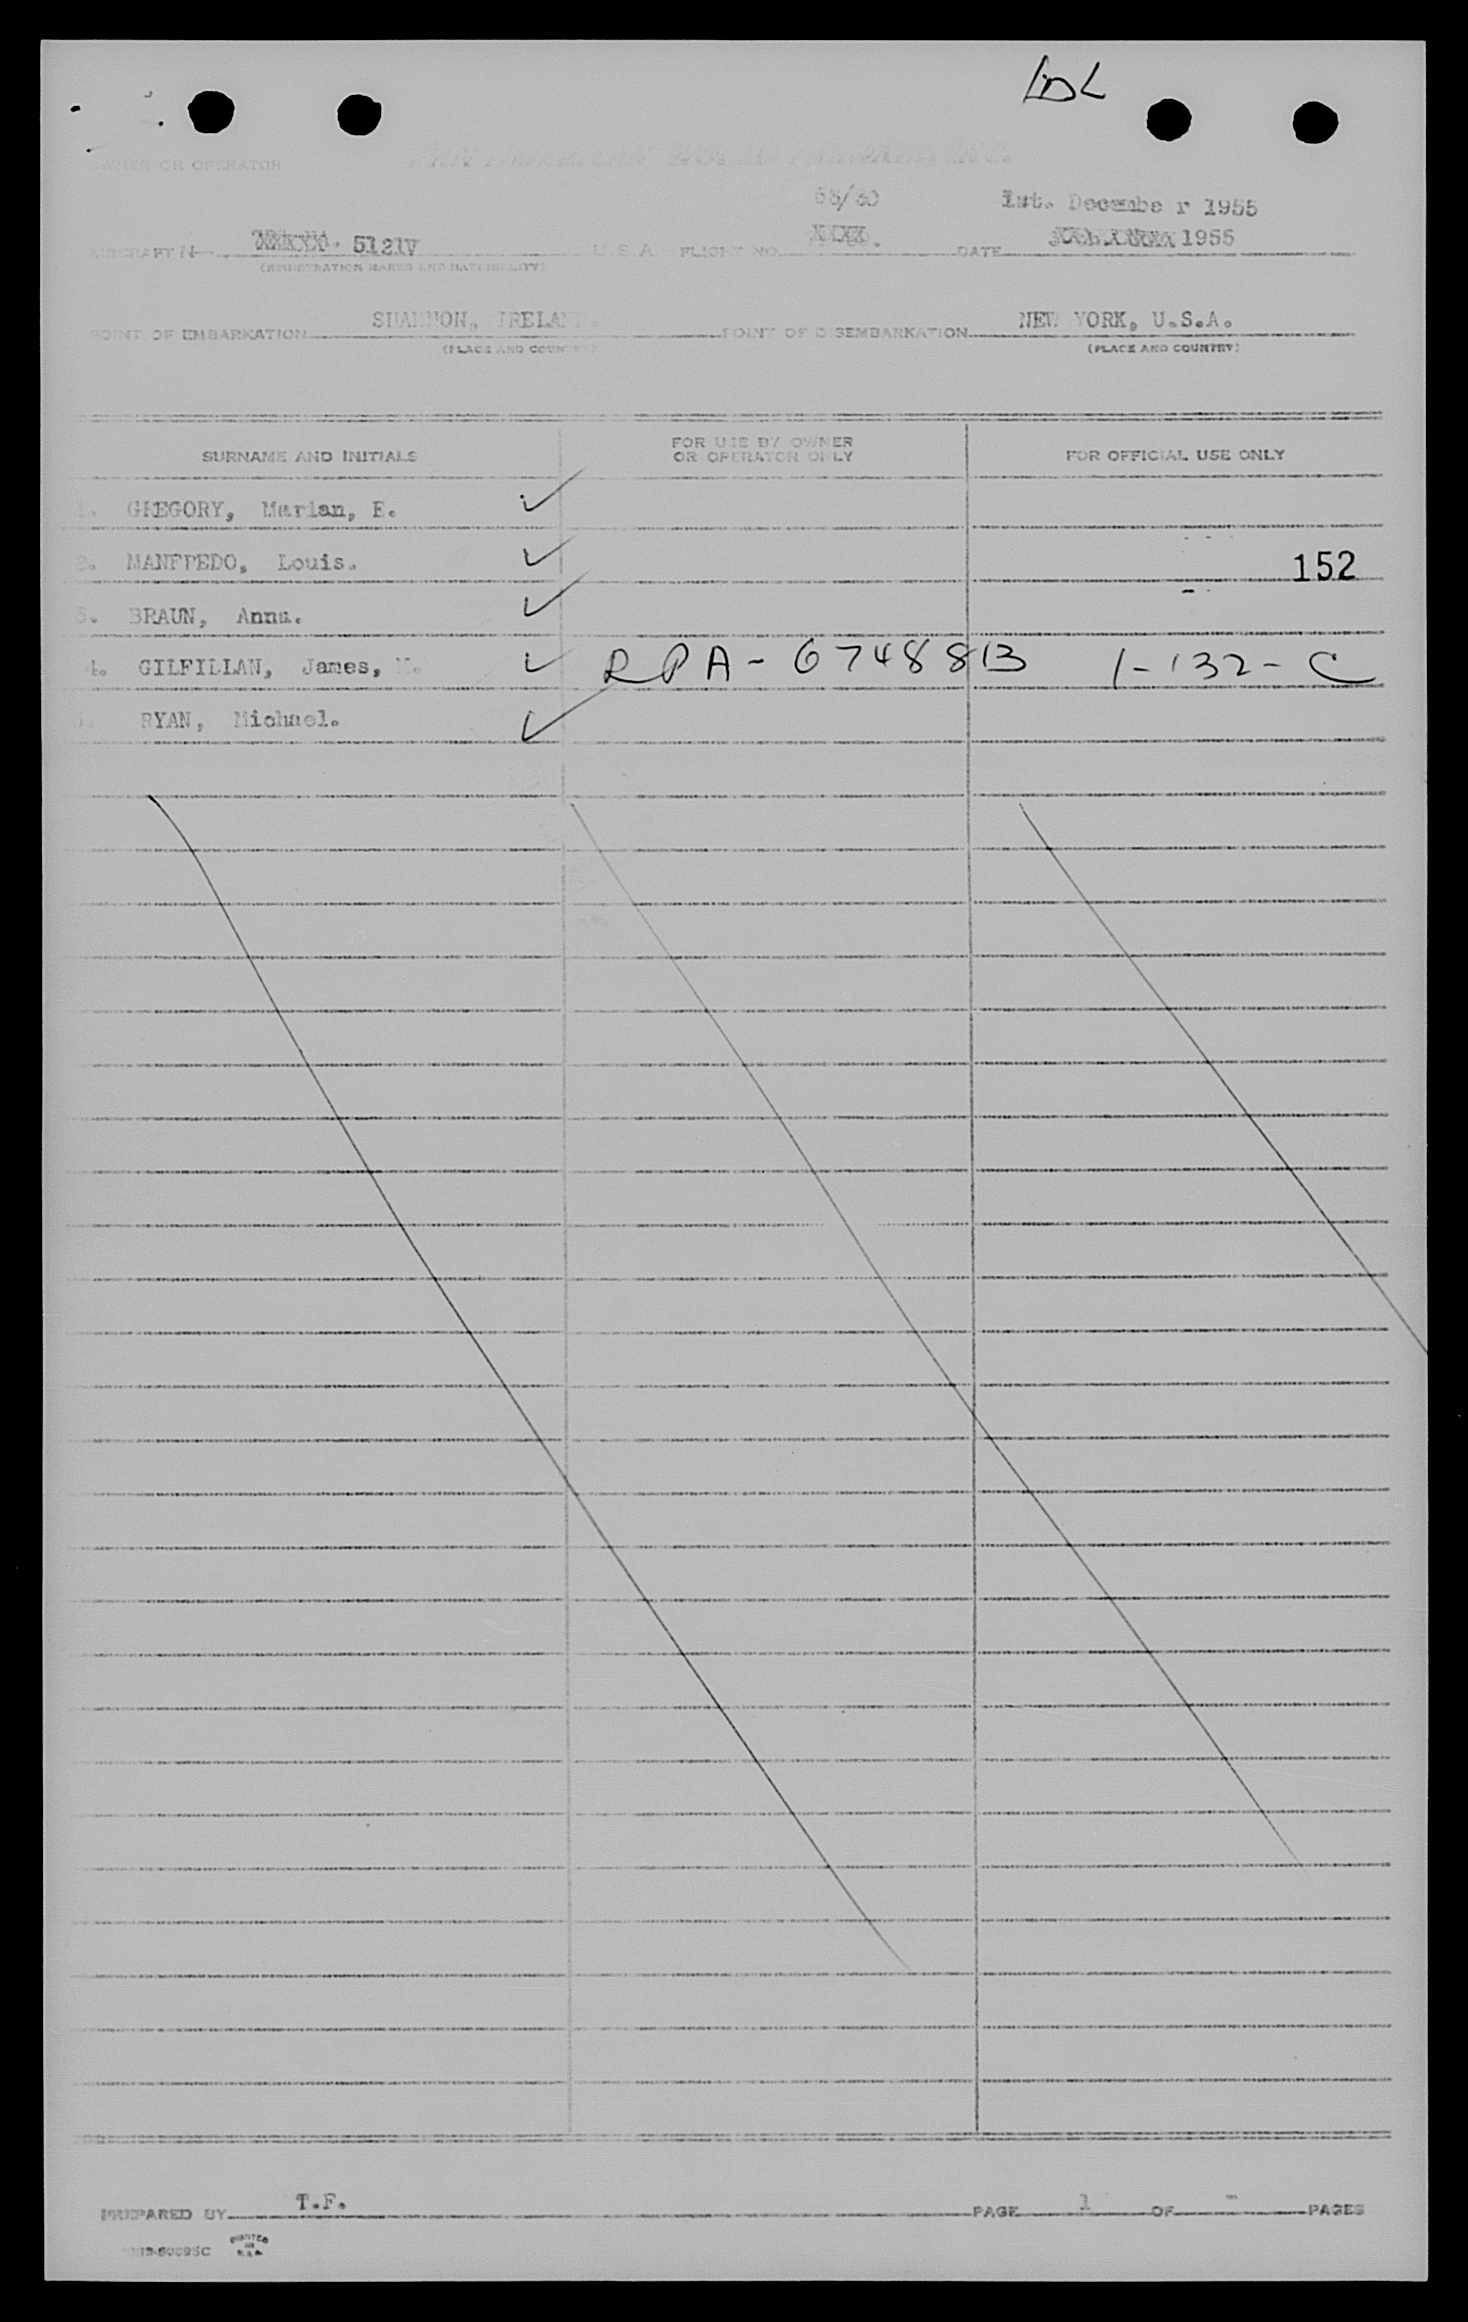 LDL
OWNER OR OPERATOR
1st. December 1955
AIRCRAFT N 5121V U.S.A. FLIGHT NO. DATE 1955
(REGISTRATION MARKS AND NATIONALITY)
POINT OF EMBARKATION SHANNON, IRELAND. POINT OF DISEMBARKATION NEW YORK, U.S.A.
(PLACE AND COUNTRY) (PLACE AND COUNTRY)
SURNAME AND INITIALS FOR USE BY OWNER OR OPERATOR ONLY FOR OFFICIAL USE ONLY
1. GREGORY, Marian, E.
2. MANFREDO, Louis. 152
3. BRAUN, Anna.
4. GILFILLAN, James, M. RPA-674881B 1-132-C
5. RYAN, Michael.
PREPARED BY T.F. PAGE 1 OF - PAGES
PRINTED IN U.S.A.